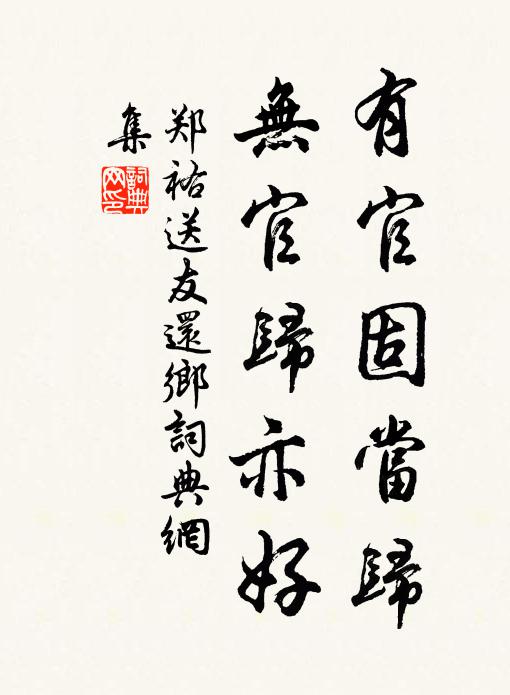 有官固當歸
無官歸亦好
郑祐送友還鄉詞典網
集
詞典
网印